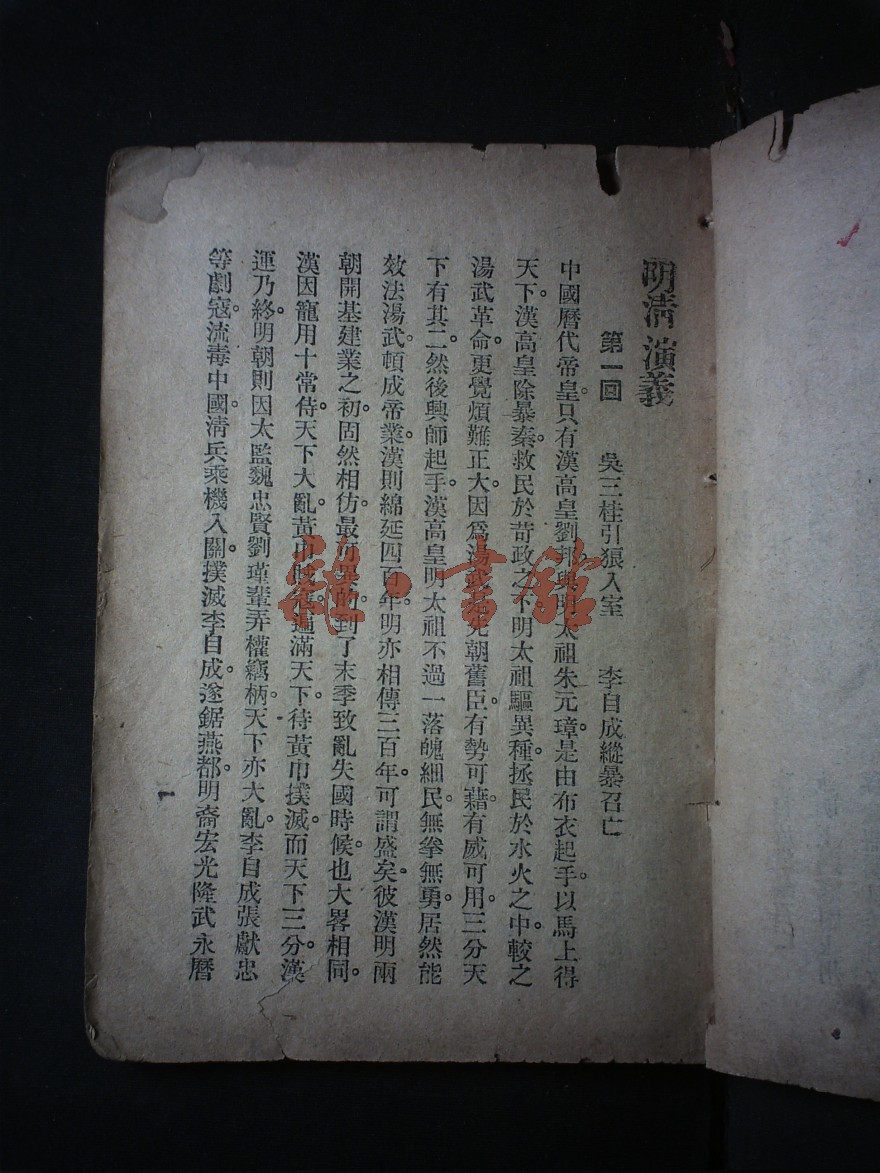 明清演義
第一回 吳三桂引狼入室 李自成縱暴召亡
中國曆代帝皇。只有漢高皇劉邦。與明太祖朱元璋。是由布衣起手。以馬上得
天下。漢高皇除暴秦。救民於苛政之下。明太祖驅異種。拯民於水火之中。較之
湯武革命。更覺煩難正大。因爲湯武 先朝舊臣。有勢可藉。有威可用。三分天
下有其二。然後興師起手。漢高皇明太祖不過一落魄細民。無拳無勇。居然能
效法湯武。頓成帝業。漢則綿延四百年。明亦相傳三百年。可謂盛矣。彼漢明兩
朝開基建業之初。固然相仿。最可異的。到了末季致亂失國時候。也大畧相同。
漢因寵用十常侍。天下大亂。黃巾 遍滿天下。待黃巾撲滅。而天下三分。漢
運乃終。明朝則因太監魏忠賢劉瑾輩弄權竊柄。天下亦大亂。李自成張獻忠
等劇寇。流毒中國。淸兵乘機入關。撲滅李自成。遂鋸燕都。明裔宏光隆武永曆
1
書館